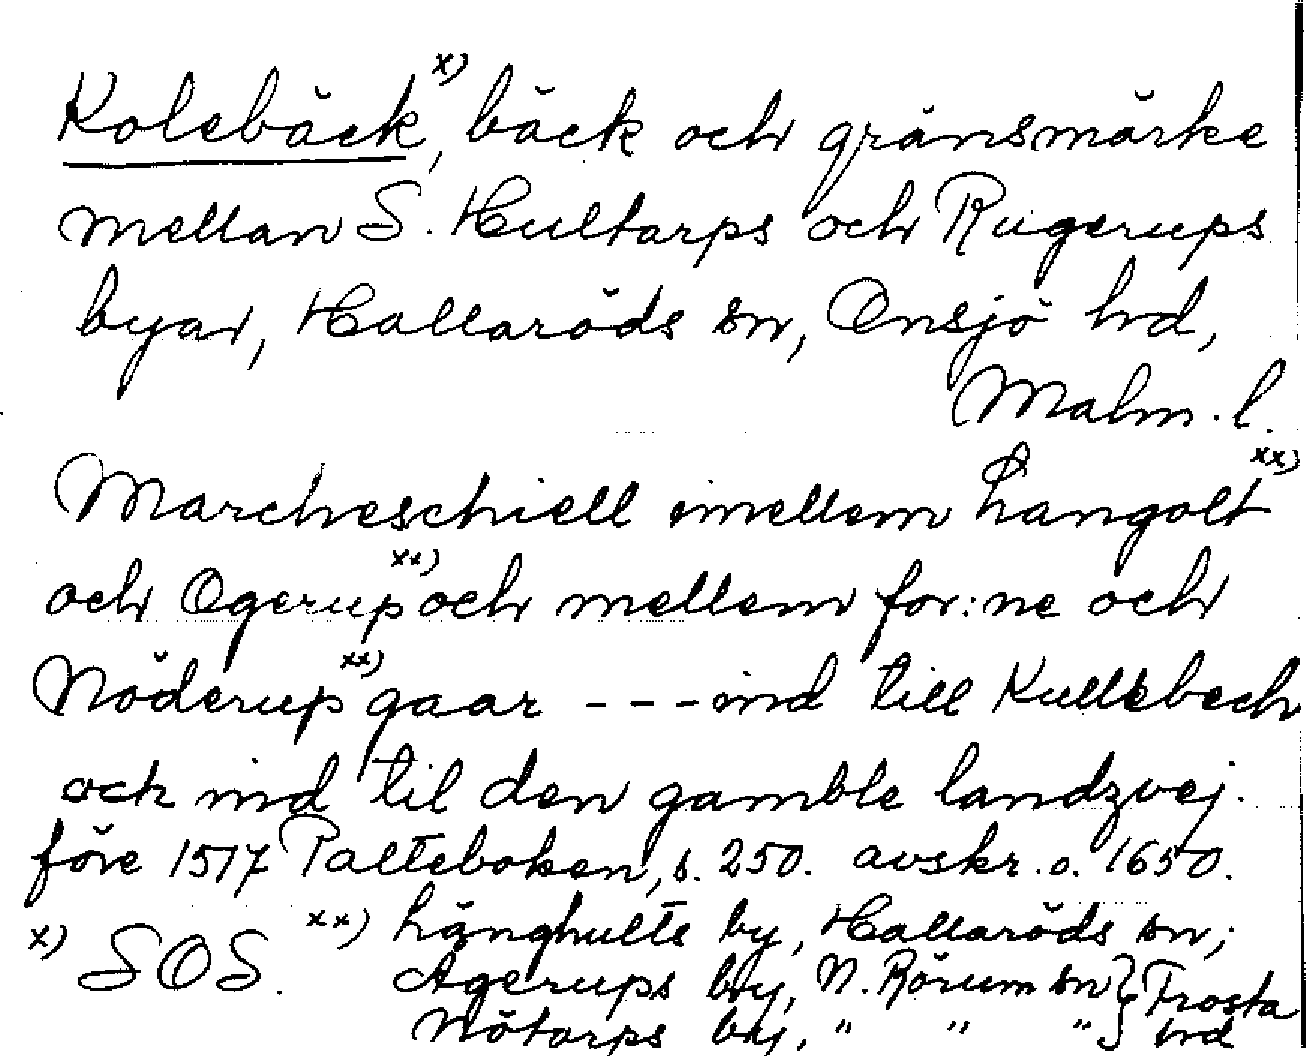 Kolebäck, x) bäck och gränsmärke
mellan S. Hultarps och Rugerups
byar, Hallaröds sn, Onsjö hd,
Malm. l.
Marcheschiell imellem Langolt xx)
och Ogerup xx) och mellem for:ne och
Nöderup xx) gaar - - - ind till Kullebech
och ind til den gamble landzvej.
före 1517 Palteboken, s. 250. avskr. o. 1650.
x) SOS. xx) Långhults by, Hallaröds sn;
Agerups by, N. Rörum sn } Frosta
Nötarps by, " " " } hd